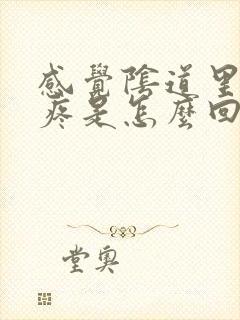 感覺陰道里
疼是怎麼回
堂奧